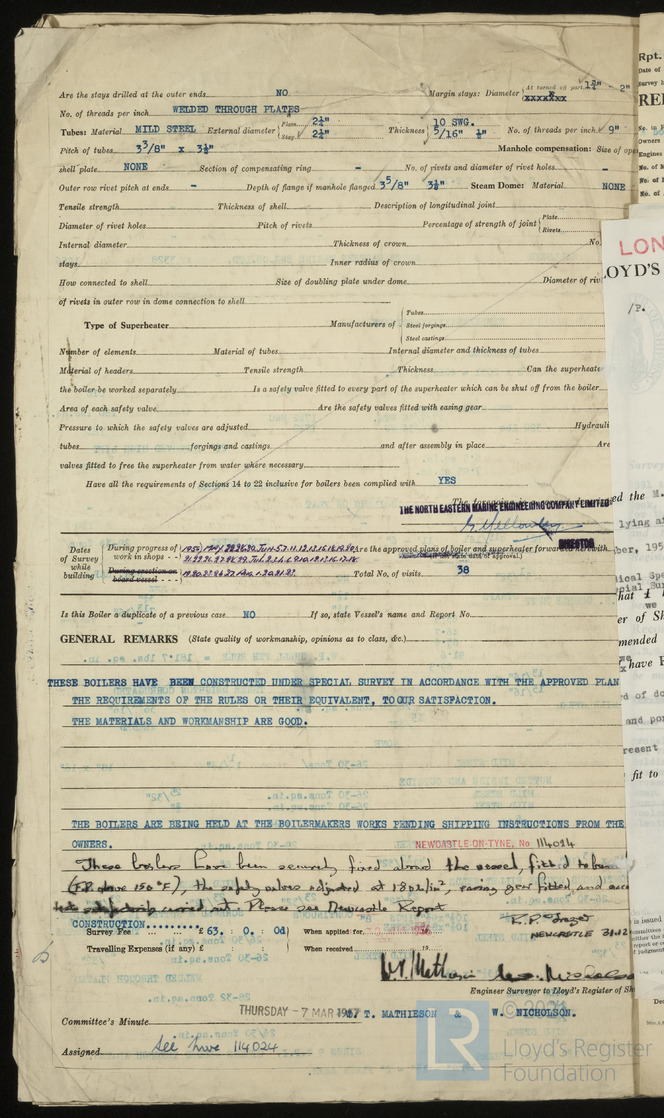 Are the stays drilled at the outer ends NO Margin stays: Diameter { At turned off part, 1¾" 2"
No. of threads per inch WELDED THROUGH PLATES
Tubes: Material MILD STEEL External diameter { Plain 2¼" Stay 2¼" Thickness { 10 SWG. 5/16" ¼" No. of threads per inch 9"
Pitch of tubes 3⅜" x 3⅛" Manhole compensation: Size of ope
shell plate NONE Section of compensating ring - No. of rivets and diameter of rivet holes -
Outer row rivet pitch at ends - Depth of flange if manhole flanged 3⅝" 3¼" Steam Dome: Material NONE
Tensile strength Thickness of shell Description of longitudinal joint
Diameter of rivet holes Pitch of rivets Percentage of strength of joint { Plate Rivets
Internal diameter Thickness of crown No.
stays Inner radius of crown
How connected to shell Size of doubling plate under dome Diameter of riv
of rivets in outer row in dome connection to shell
Type of Superheater Manufacturers of { Tubes Steel forgings Steel castings
Number of elements Material of tubes Internal diameter and thickness of tubes
Material of headers Tensile strength Thickness Can the superheate
the boiler be worked separately Is a safety valve fitted to every part of the superheater which can be shut off from the boiler
Area of each safety valve Are the safety valves fitted with easing gear
Pressure to which the safety valves are adjusted Hydrauli
tubes forgings and castings and after assembly in place Are
valves fitted to free the superheater from water where necessary
Have all the requirements of Sections 14 to 22 inclusive for boilers been complied with YES
The foregoing is
THE NORTH EASTERN MARINE ENGINEERING COMPANY LIMITED
DIRECTOR
Dates of Survey while building { During progress of work in shops - - During erection on board vessel - - -
Are the approved plans of boiler and superheater forwarded herewith
Total No. of visits 38
Is this Boiler a duplicate of a previous case NO If so, state Vessel's name and Report No.
GENERAL REMARKS (State quality of workmanship, opinions as to class, &c.)
THESE BOILERS HAVE BEEN CONSTRUCTED UNDER SPECIAL SURVEY IN ACCORDANCE WITH THE APPROVED PLAN
THE REQUIREMENTS OF THE RULES OR THEIR EQUIVALENT, TO OUR SATISFACTION.
THE MATERIALS AND WORKMANSHIP ARE GOOD.
THE BOILERS ARE BEING HELD AT THE BOILERMAKERS WORKS PENDING SHIPPING INSTRUCTIONS FROM THE
OWNERS. NEWCASTLE-ON-TYNE, No 114024
These boilers have been securely fixed aboard the vessel, fitted to burn
(F.P. above 150°F), the safety valves adjusted at 180 lb/in², easing gear fitted, and acc
tests satisfactorily carried out. Please see Newcastle Report
R.P. Frazer
NEWCASTLE 31.12
CONSTRUCTION
Survey Fee £ 63. : 0. : 0d When applied for
Travelling Expenses (if any) £ When received 19
W.T. Mathieson W. Nicholson
Engineer Surveyor to Lloyd's Register of Sh
W. T. MATHIESON & W. NICHOLSON.
THURSDAY - 7 MAR 1957
Committee's Minute
Assigned See hwe 114024
Rpt.
Date of
Survey h
REP
No. in
Owners
Engines
No. of M
LON
LOYD'S
/P.
ed the M.
lying a
ber, 195
nical Spe
hat I
we
er of Sh
mended
have
d of do
and por
resent
fit to
is issued
© 2021
LR
Lloyd's Register
Foundation